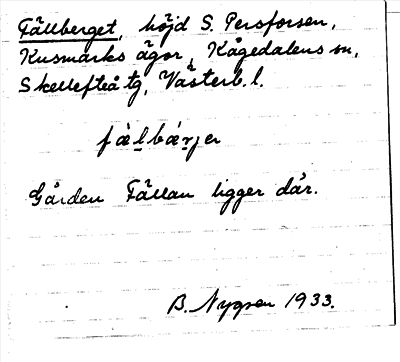 Fällberget, höjd S. Persforsen,
Kusmarks ägor, Kågedalens sn,
Skellefteå tg, Västerb. l.
fälbärjer
Gården Fällan ligger där.
B. Nygren 1933.